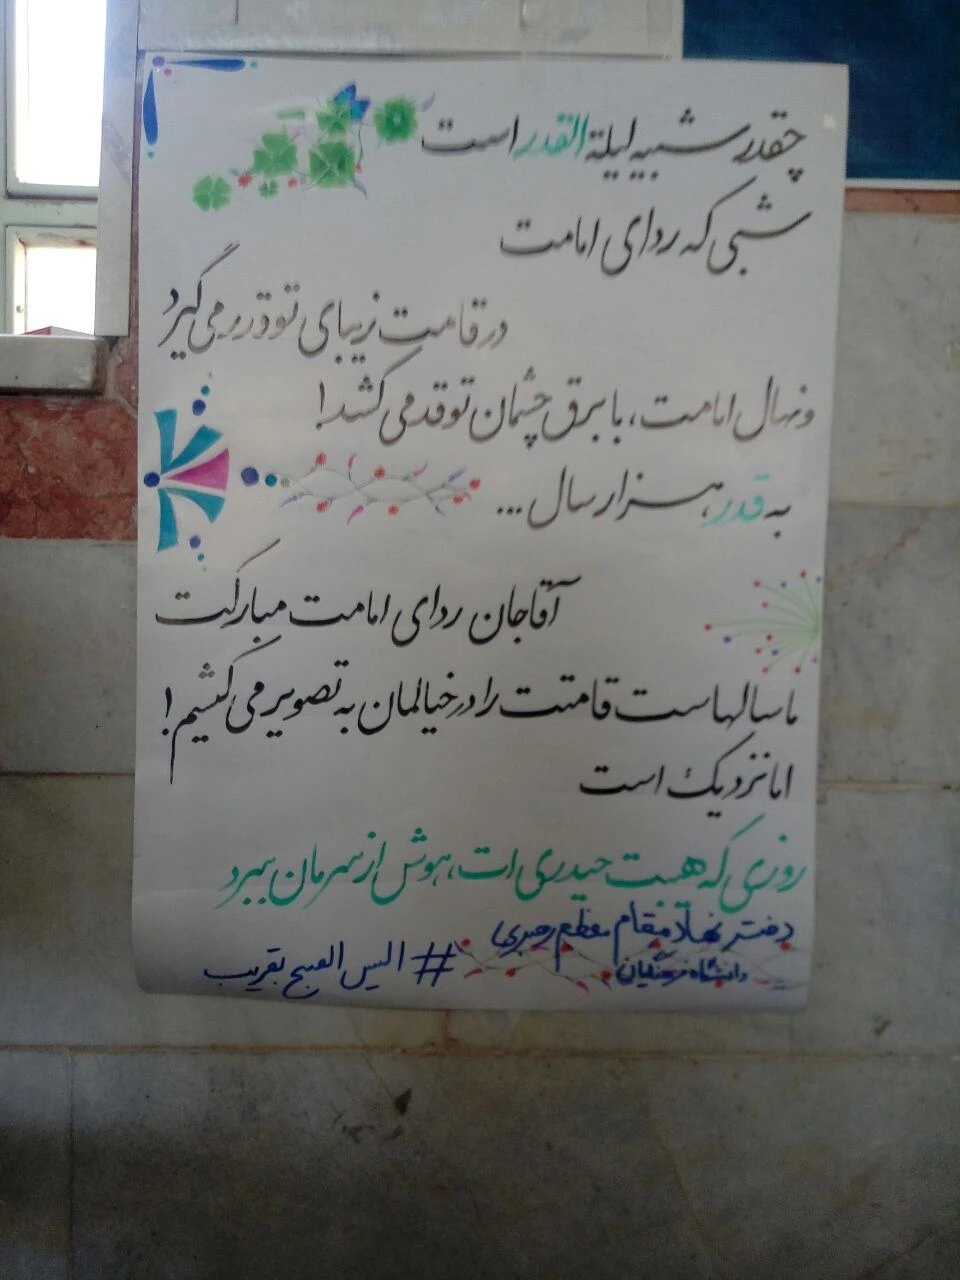 چقدر شبیه لیلة القدر است
شبی که ردای امامت
در قامت زیبای تو قدر می گیرد
و نهال امامت، با برق چشمان تو قد می کشد!
به قدر هزار سال ...
آقاجان ردای امامت مبارکت
ما سالهاست قامتت را در خیالمان به تصویر می کشیم!
اما نزدیک است
روزی که هیبت حیدری ات، هوش از سرمان ببرد
دفتر نهاد مقام معظم رهبری
دانشگاه فرهنگیان
#الیس الصبح بقریب